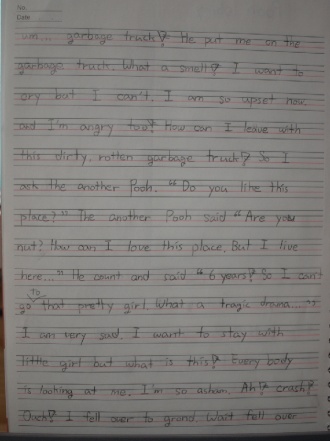 No.
Date
um... garbage truck!? He put me on the
garbage truck. What a smell!? I want to
cry but I can't. I am so upset now
and I'm angry too!? How can I leave with
this dirty, rotten garbage truck!? So I
ask the another Pooh. "Do you like this
place?" The another Pooh said "Are you
nut? How can I love this place. But I live
here..." He count and said "6 years!? So I can't
go To that pretty girl. What a tragic drama..."
I am very sad. I want to stay with
little girl but what is this!? Every body
is looking at me. I'm so asham. Ah!? crash!?
Ouch!? I fell over to grond. Wait fell over